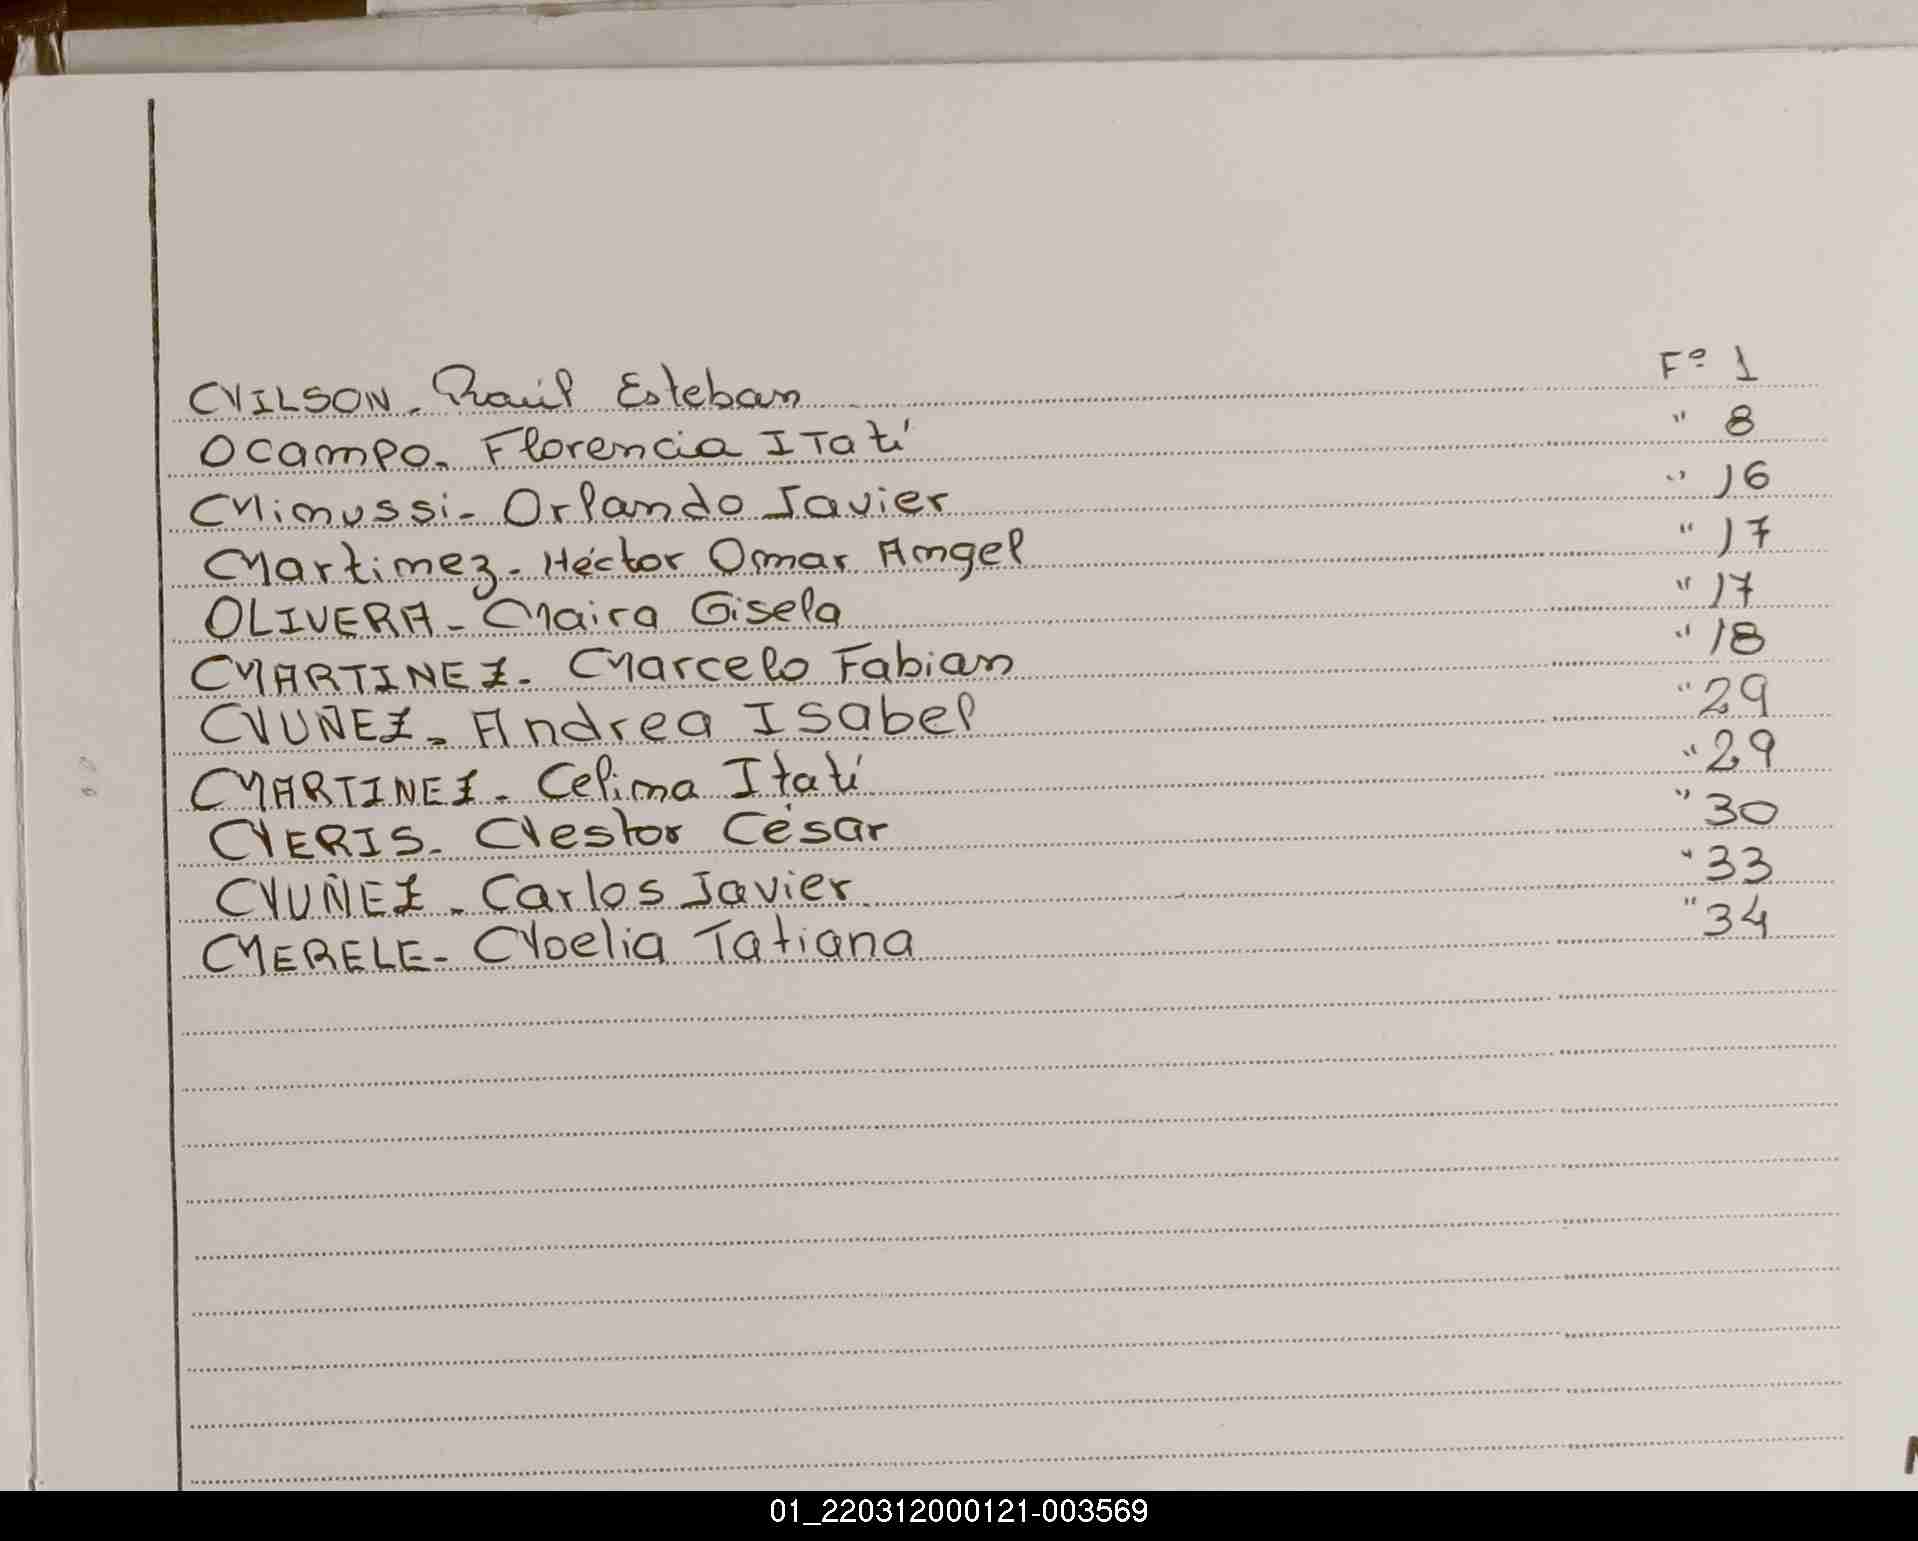 NILSON. Raúl Esteban F° 1
Ocampo. Florencia Itatí " 8
Mimussi- Orlando Javier " 16
Martinez- Héctor Omar Angel " 17
OLIVERA- Maira Gisela " 17
MARTINEZ- Marcelo Fabian " 18
NUÑEZ- Andrea Isabel " 29
MARTINEZ- Celina Itatí " 29
NERIS- Nestor César " 30
NUÑEZ- Carlos Javier " 33
MERELE- Noelia Tatiana " 34
01_220312000121-003569